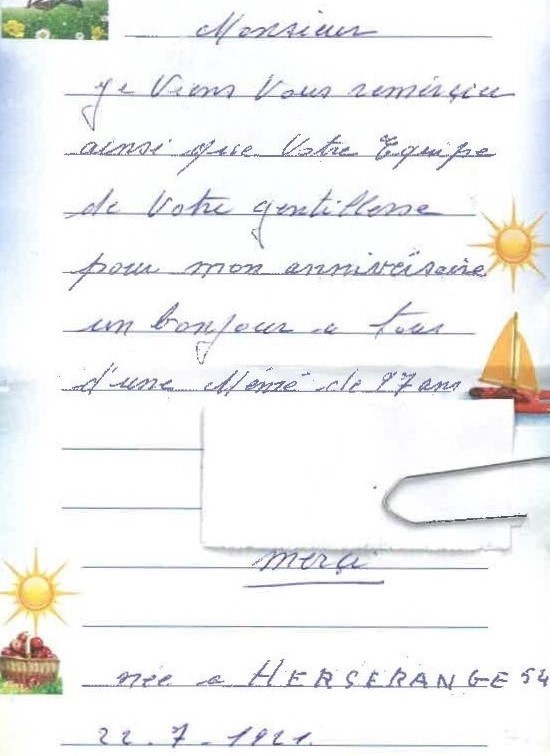 Monsieur
je Viens Vous remerçier
ainsi que Votre Equipe
de Votre gentillesse
pour mon anniversaire
un bonjour a tous
d'une Mémé de 97 ans
merçi
née a HERSERANGE 54
22.7-1921.